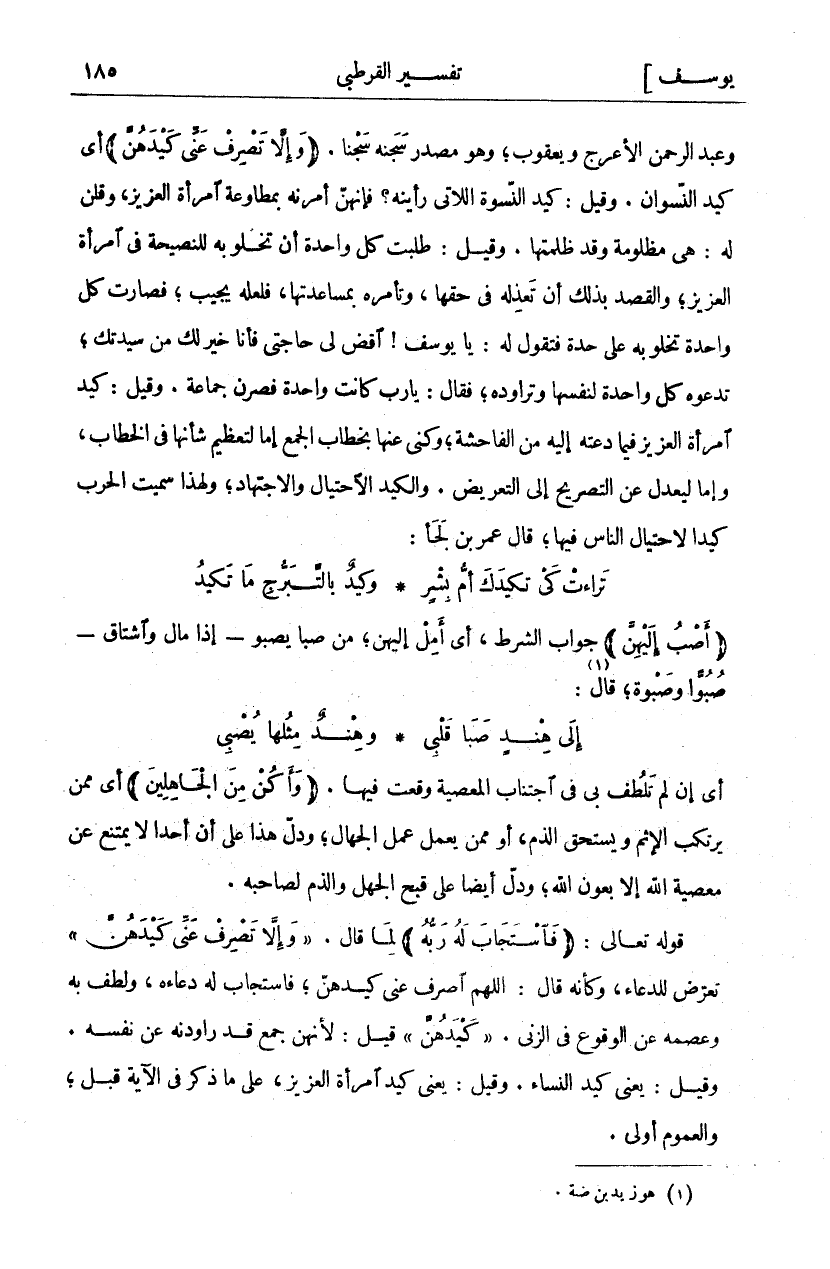 يوسف] تفسير القرطبي ١٨٥
وعبد الرحمن الأعرج ويعقوب؛ وهو مصدر سَجَنه سَجْنا . ﴿وَإِلَّا تَصْرِفْ عَنِّى كَيْدَهُنَّ﴾ أى
كيد النّسوان . وقيل : كيد النّسوة اللاتى رأينه؟ فإنهنّ أمرنه بمطاوعة ٱمرأة العزيز، وقلن
له : هى مظلومة وقد ظلمتها . وقيـل : طلبت كل واحدة أن تخلو به للنصيحة فى ٱمرأة
العزيز؛ والقصد بذلك أن تَعذِله فى حقها ، وتأمره بمساعدتها، فلعله يجيب ؛ فصارت كل
واحدة تخلو به على حدة فتقول له : يا يوسف ! ٱقض لى حاجتى فأنا خير لك من سيدتك ؛
تدعوه كل واحدة لنفسها وتراوده؛ فقال : يارب كانت واحدة فصرن جماعة . وقيل : كيد
ٱمرأة العزيز فيما دعته إليه من الفاحشة؛ وكنى عنها بخطاب الجمع إما لتعظيم شأنها فى الخطاب،
وإما ليعدل عن التصريح إلى التعريض . والكيد الٱحتيال والاجتهاد؛ ولهذا سميت الحرب
كيدا لاحتيال الناس فيها؛ قال عمر بن لَجَأ :
تَراءتْ كَىْ تكيدَكَ أمُّ بِشْرٍ * وكيدٌ بالتَّـبَرُّجِ مَا تَكيدُ
﴿أَصْبُ إِلَيْهِنَّ﴾ جواب الشرط ، أى أَمِلْ إليهن؛ من صبا يصبو — إذا مال وٱشتاق —
صُبُوًّا وصَبْوة؛ قال (١) :
إِلَى هِنْـدٍ صَبَا قَلْبِى * وهِنْـدٌ مِثْلها يُصْبِى
أى إن لم تَلْطُف بى فى ٱجتناب المعصية وقعت فيهـا . ﴿وَأَكُنْ مِنَ الْجَاهِلِينَ﴾ أى ممن
يرتكب الإثم ويستحق الذم، أو ممن يعمل عمل الجهال؛ ودلّ هذا على أن أحدا لا يمتنع عن
معصية الله إلا بعون الله؛ ودلّ أيضا على قبح الجهل والذم لصاحبه .
قوله تعـالى : ﴿فَٱسْتَجَابَ لَهُ رَبُّهُ﴾ لمـا قال . « وَإِلَّا تَصْرِفْ عَنِّى كَيْدَهُنَّ »
تعرّض للدعاء، وكأنه قال : اللهم ٱصرف عنى كيـدهنّ ؛ فاستجاب له دعاءه ، ولطف به
وعصمه عن الوقوع فى الزنى . « كَيْدَهُنَّ » قيـل : لأنهن جمع قـد راودنه عن نفسـه .
وقيـل : يعنى كيد النساء . وقيل : يعنى كيد ٱمرأة العزيز، على ما ذكر فى الآية قبـل ؛
والعموم أولى .
(١) هو زيد بن ضبة .